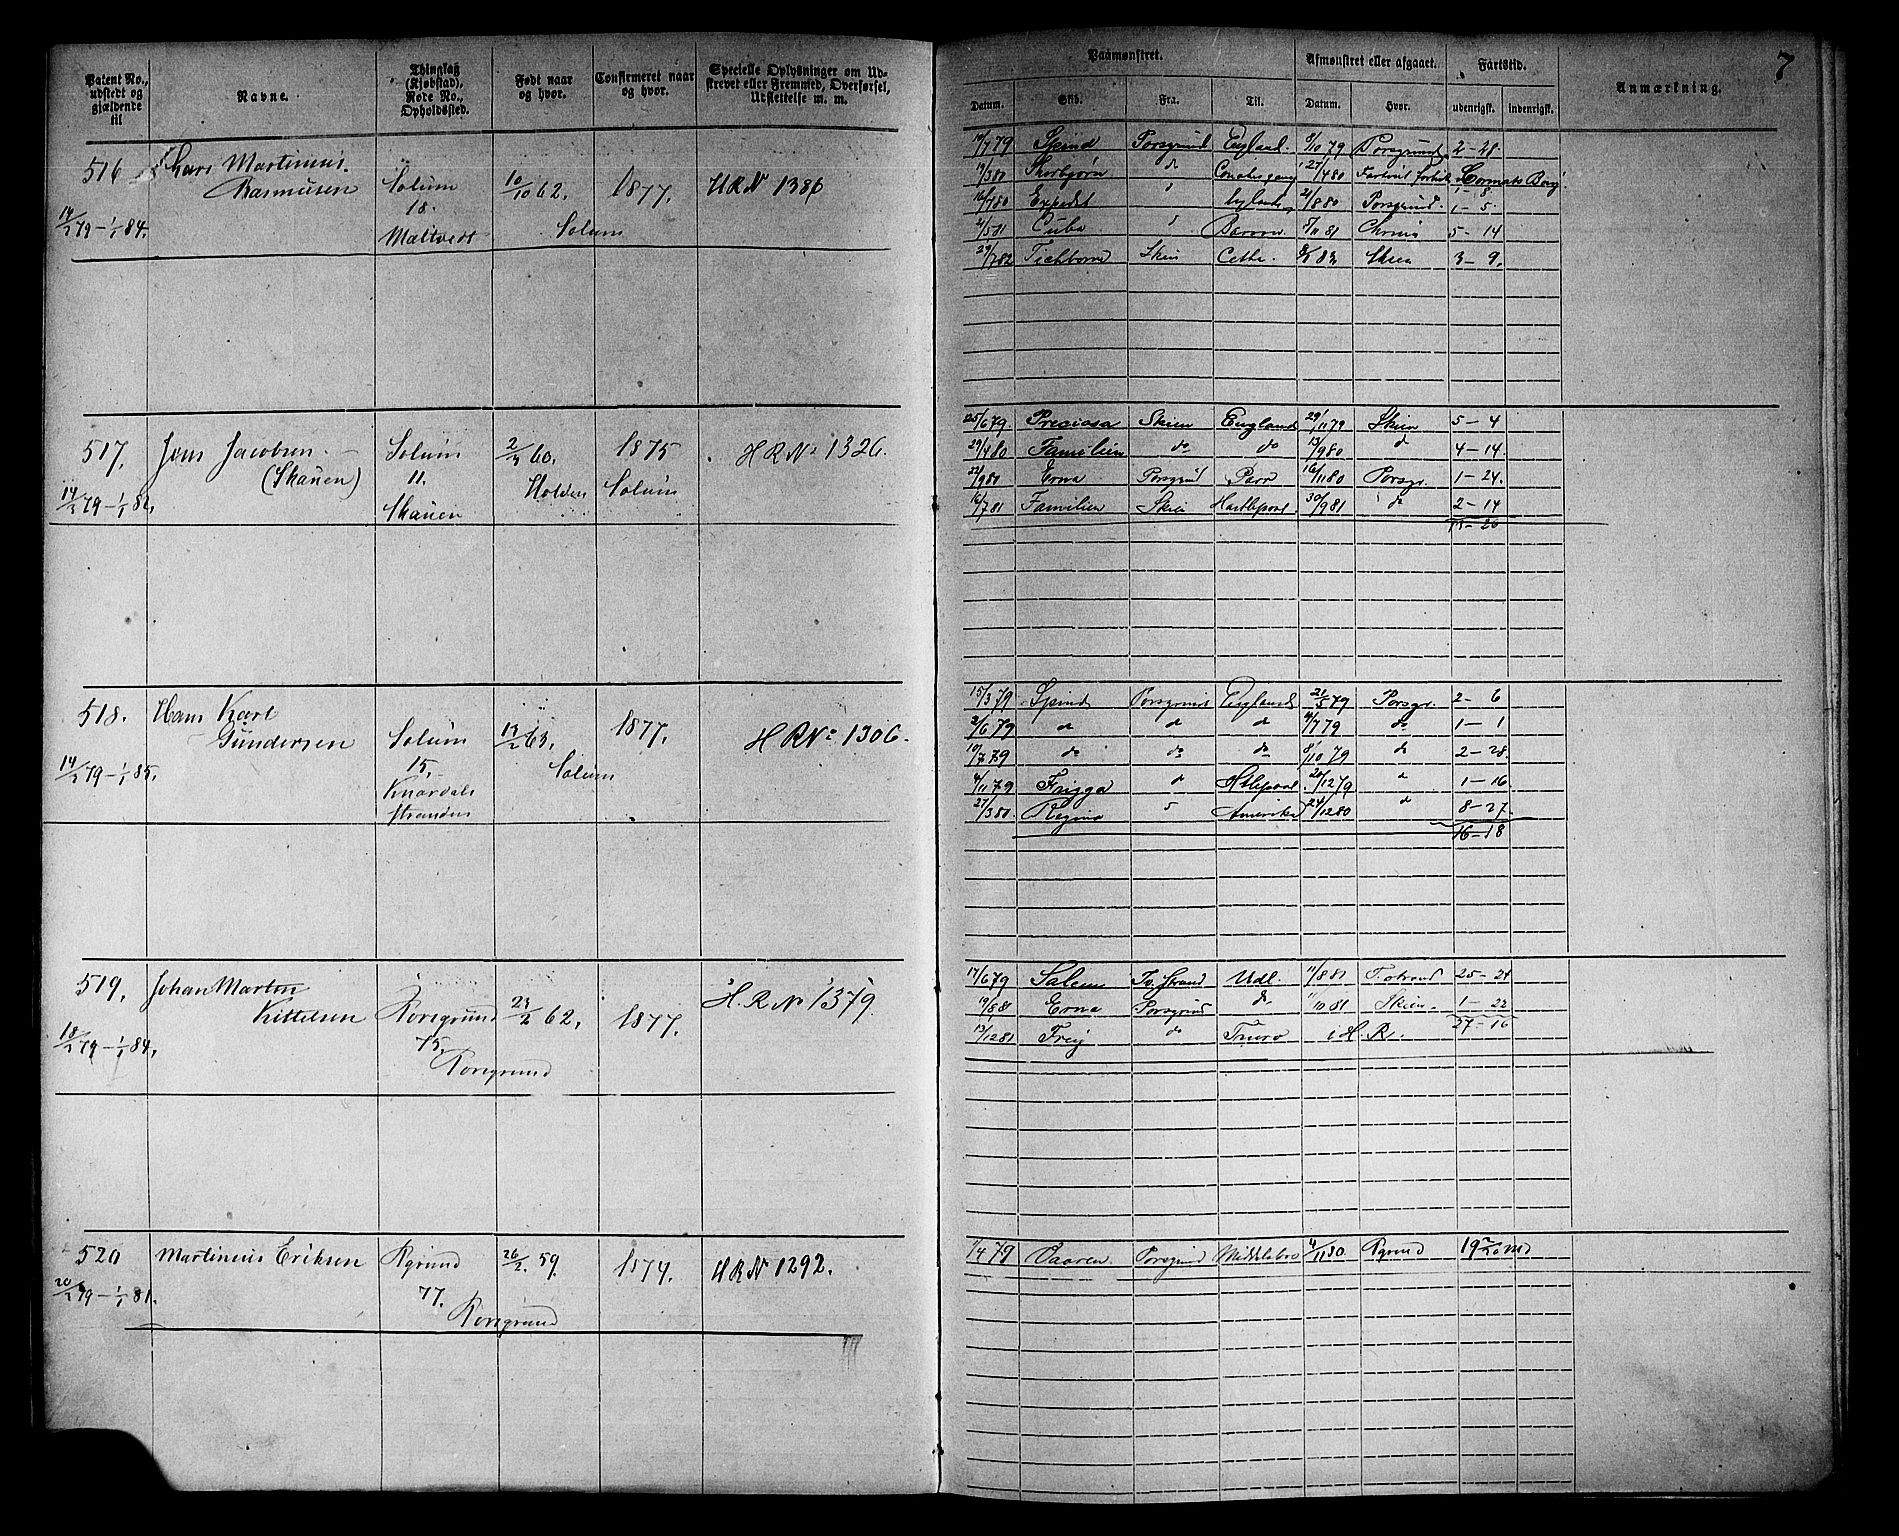 Patent No., udstedt og gjældende til
Navne.
Thinglag (Kjøbstad), Rode No., Opholdssted.
Født naar og hvor.
Confirmeret naar og hvor.
Specielle Oplysninger om Udskrevet eller Fremmed, Overførsel, Udslettelse m. m.
516
Lars Martinius Rasmusen
Solum 18. Mæltvedt
10/10 62. Solum
1877.
HRN 1386
14/2 79 – 1/1 84.
517.
Jens Jacobsen (Skauen)
Solum 11. Skauen
2/3 60. Holden
1875 Solum
HRN: 1326.
14/2 79 – 1/1 82.
518.
Hans Karl Gundersen
Solum 15. Knardalsstranden
13/2 63. Solum
1877.
HRN: 1306.
14/2 79 – 1/1 85.
519.
Johan Martin Kittelsen
Porsgrund 75. Porsgrund
23/2 62.
1877.
H.R.N 1379.
18/2 79 – 1/1 84.
520
Martinius Eriksen
Pgrund 77. Porsgrund
26/2 59.
1874.
HRN 1292.
20/2 79 – 1/1 81.
7
Paamønstret.
Afmønstret eller afgaaet.
Fartstid.
Anmærkning.
Datum. Skib. Fra. Til. Datum. Hvor. udenrigsk. indenrigsk.
10/7 79 Spind Porsgrund England. 8/10 79 Porsgrund. 2 – 28.
19/3 80 Thorbjørn do 27/4 80
16/7 80 Expedit 21/8 80 Porsgrund. 1 – 5.
2/5 81 Cuba 5/11 81 Chrnia 5 – 14
29/7 82 Tichborne Skien Cette. 83 Skien 3 – 9.
25/6 79. Preciosa Skien England 29/11 79 Skien 5 – 4
29/4 80 Familien do do 13/9 80 d 4 – 14
22/9 80 Erna Porsgrund 16/11 80 Porsgr. 1 – 24.
16/7 81 Familien Skien Hartlepool 30/9 81 do 2 – 14
15/3 79 Spind Porsgrund England 21/5 79 Porsgr. 2 – 6
2/6 79 do do do 4/7 79 do 1 – 1
10/7 79 do do do 8/10 79 d 2 – 28.
4/11 79 Frigga d Htlepool 20/12 79 d 1 – 16
27/3 80. Regina Amerika 24/12 80 d 8 – 27.
16 – 18
17/6 79 Salem Tv. Strand Udl. 11/8 81 T. strand 25 – 24
19/8 81 Erna Porsgrund do 10 81 Skien. 1 – 22
27 – 16
13/12 81 Freij do Truro i H. R.
1/4 79 Vaaren Porsgrund Middelsbro 4/11 80 Pgrund